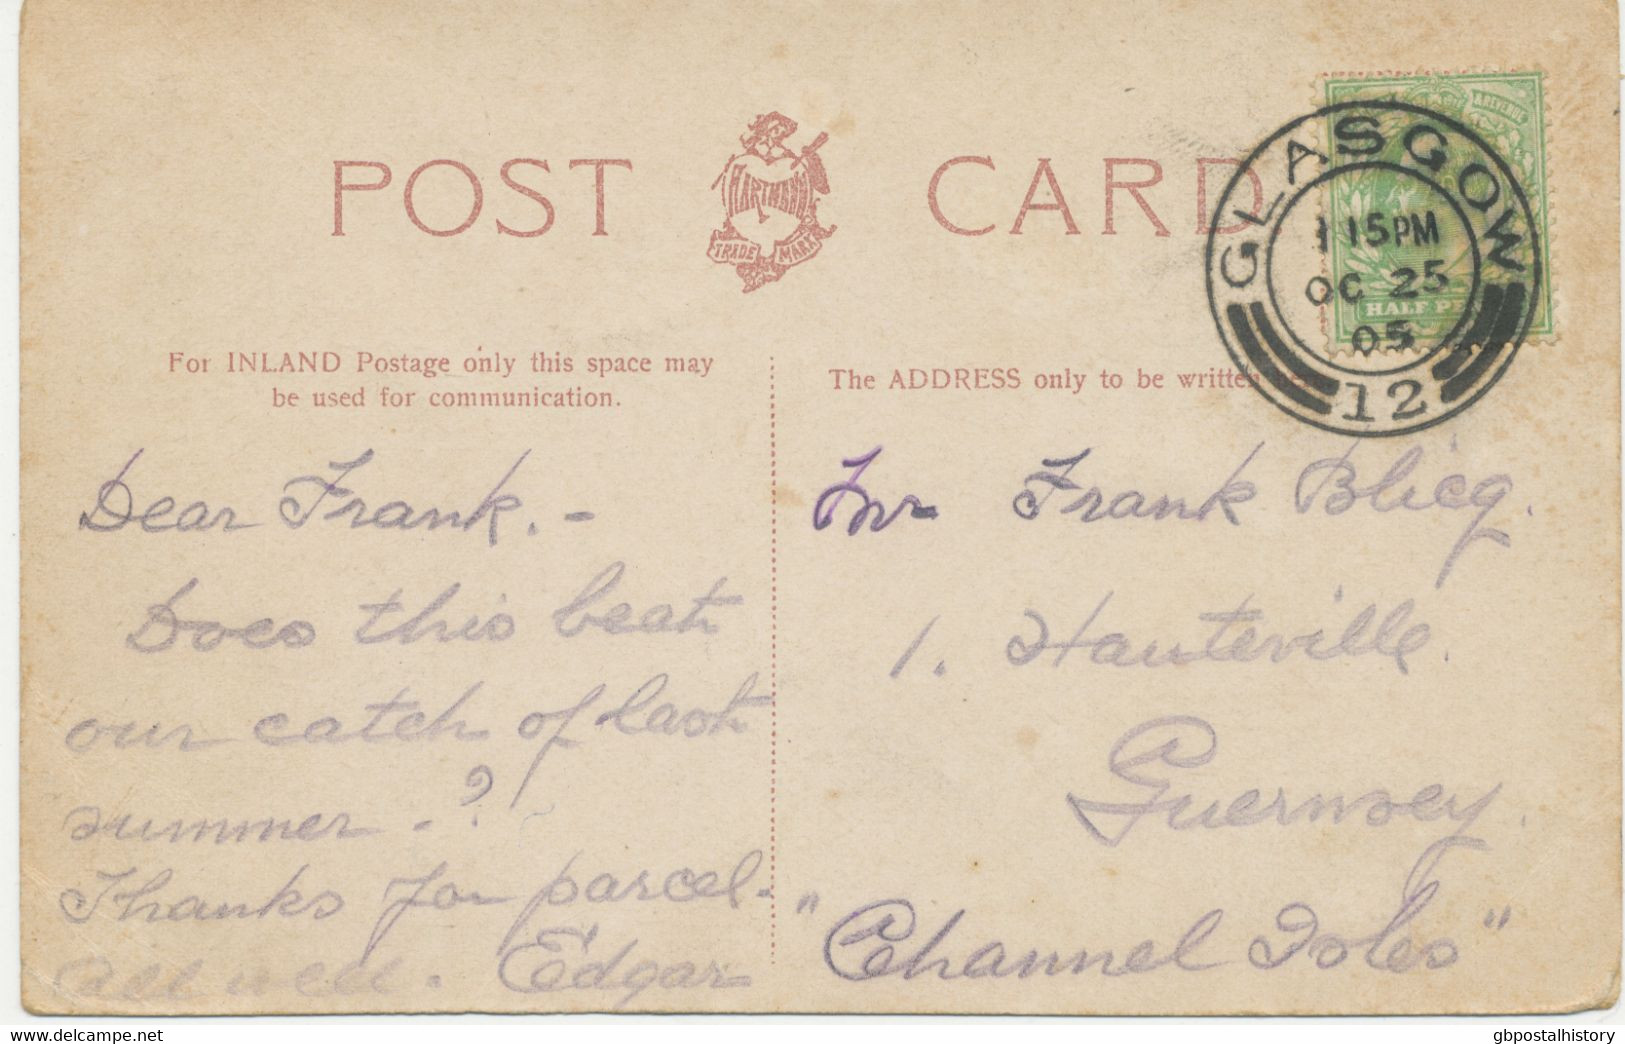 POST CARD
HARTMANN
TRADE MARK
GLASGOW
1 15 PM
OC 25
05
12
HALF PE
For INLAND Postage only this space may
be used for communication.
The ADDRESS only to be written
Dear Frank. -
Does this beat
our catch of last
summer - ?
Thanks for parcel -
All well. Edgar
Frank Blicq.
1. Hauteville.
Guernsey.
"Channel Isles"
www.delcampe.net
gbpostalhistory